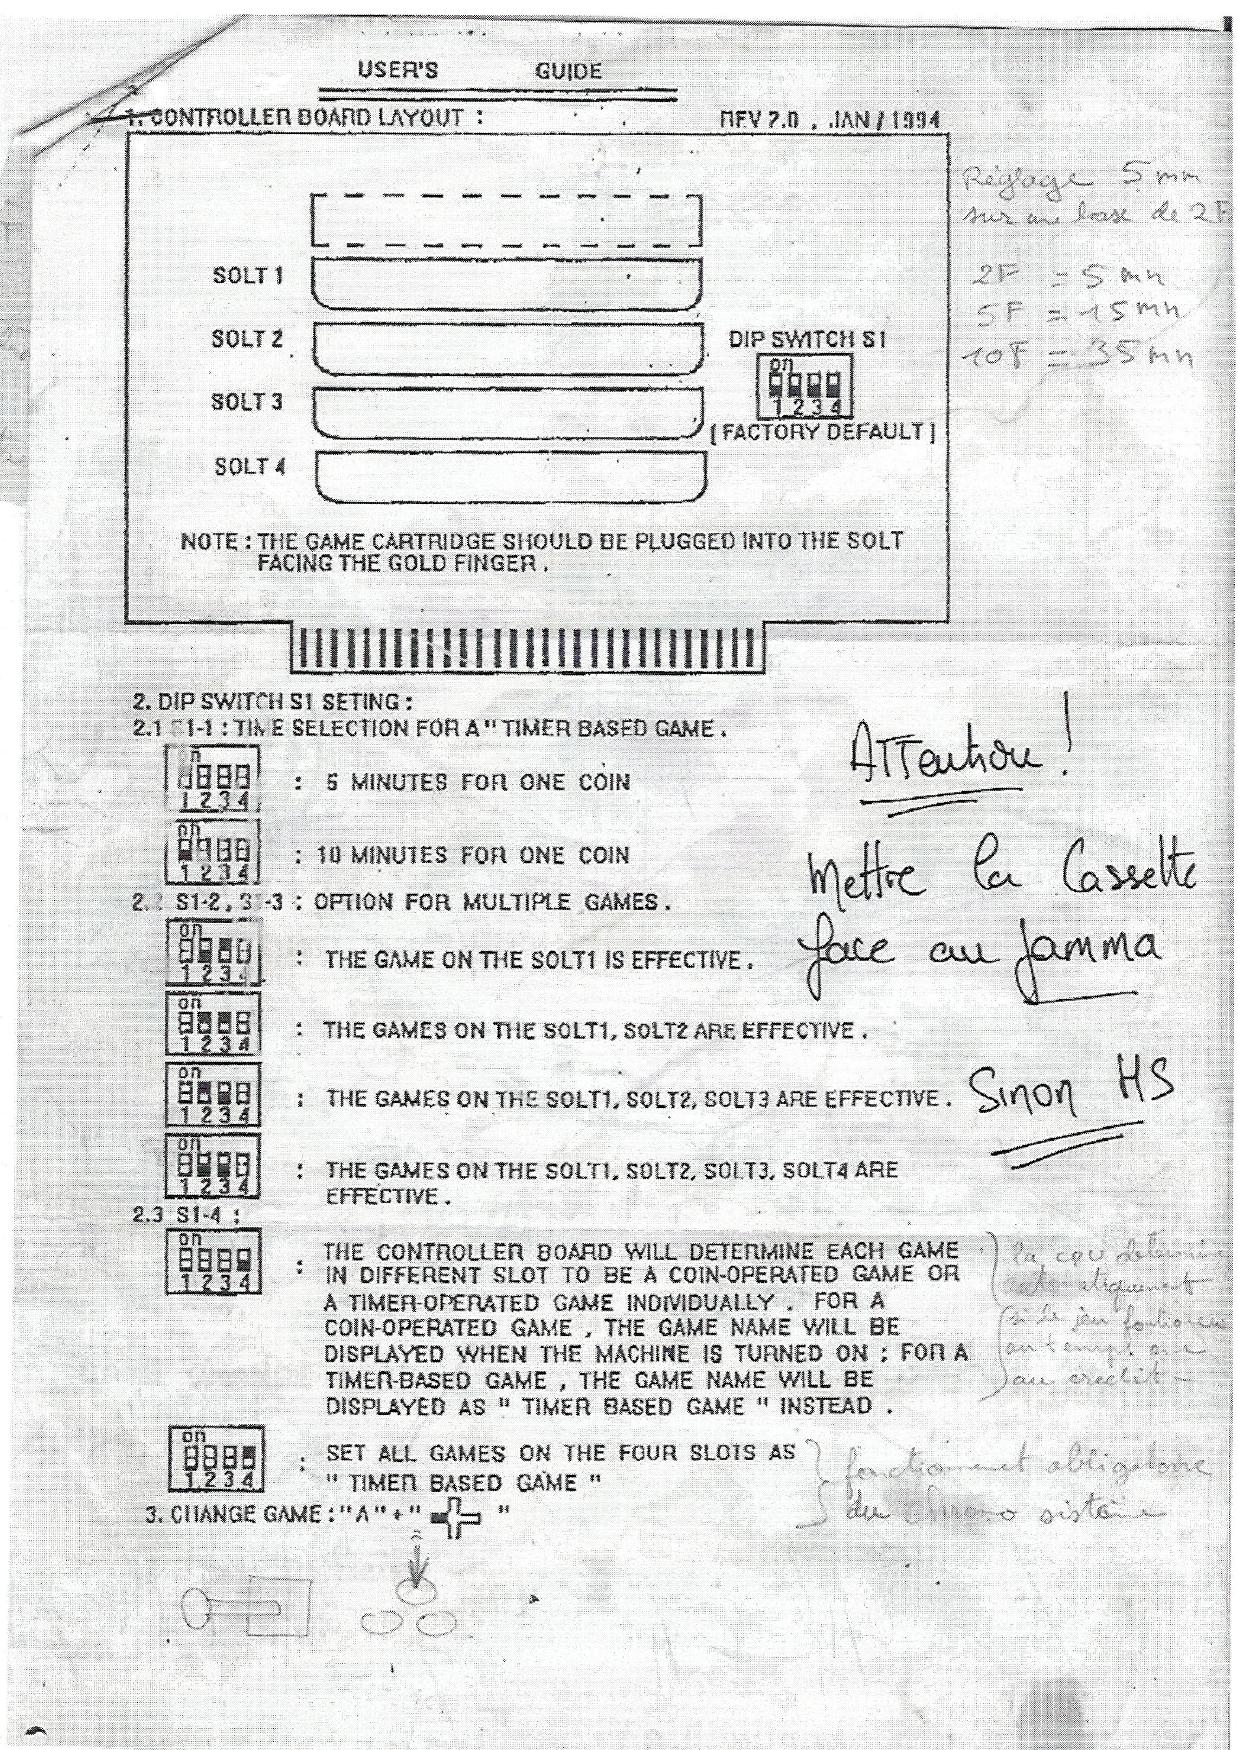 USER'S GUIDE
1. CONTROLLER BOARD LAYOUT :
REV 2.0 , JAN / 1994
Réglage 5 mn
sur un base de 2F
2F = 5 mn
5F = 15 mn
10F = 35 mn
SOLT 1
SOLT 2
SOLT 3
SOLT 4
DIP SWITCH S1
on
1 2 3 4
[ FACTORY DEFAULT ]
NOTE : THE GAME CARTRIDGE SHOULD BE PLUGGED INTO THE SOLT
FACING THE GOLD FINGER .
2. DIP SWITCH S1 SETING :
2.1 S1-1 : TIME SELECTION FOR A " TIMER BASED GAME .
on
1 2 3 4
: 5 MINUTES FOR ONE COIN
on
1 2 3 4
: 10 MINUTES FOR ONE COIN
ATTention !
Mettre la Cassette
face au Jamma
Sinon HS
2.2 S1-2, S1-3 : OPTION FOR MULTIPLE GAMES .
on
1 2 3 4
: THE GAME ON THE SOLT1 IS EFFECTIVE .
on
1 2 3 4
: THE GAMES ON THE SOLT1, SOLT2 ARE EFFECTIVE .
on
1 2 3 4
: THE GAMES ON THE SOLT1, SOLT2, SOLT3 ARE EFFECTIVE .
on
1 2 3 4
: THE GAMES ON THE SOLT1, SOLT2, SOLT3, SOLT4 ARE
EFFECTIVE .
2.3 S1-4 :
on
1 2 3 4
: THE CONTROLLER BOARD WILL DETERMINE EACH GAME
IN DIFFERENT SLOT TO BE A COIN-OPERATED GAME OR
A TIMER-OPERATED GAME INDIVIDUALLY . FOR A
COIN-OPERATED GAME , THE GAME NAME WILL BE
DISPLAYED WHEN THE MACHINE IS TURNED ON ; FOR A
TIMER-BASED GAME , THE GAME NAME WILL BE
DISPLAYED AS " TIMER BASED GAME " INSTEAD .
la cpu
si le jeu
au temps
au credit
on
1 2 3 4
: SET ALL GAMES ON THE FOUR SLOTS AS
" TIMER BASED GAME "
obligatoire
du chrono
3. CHANGE GAME : " A " + " "